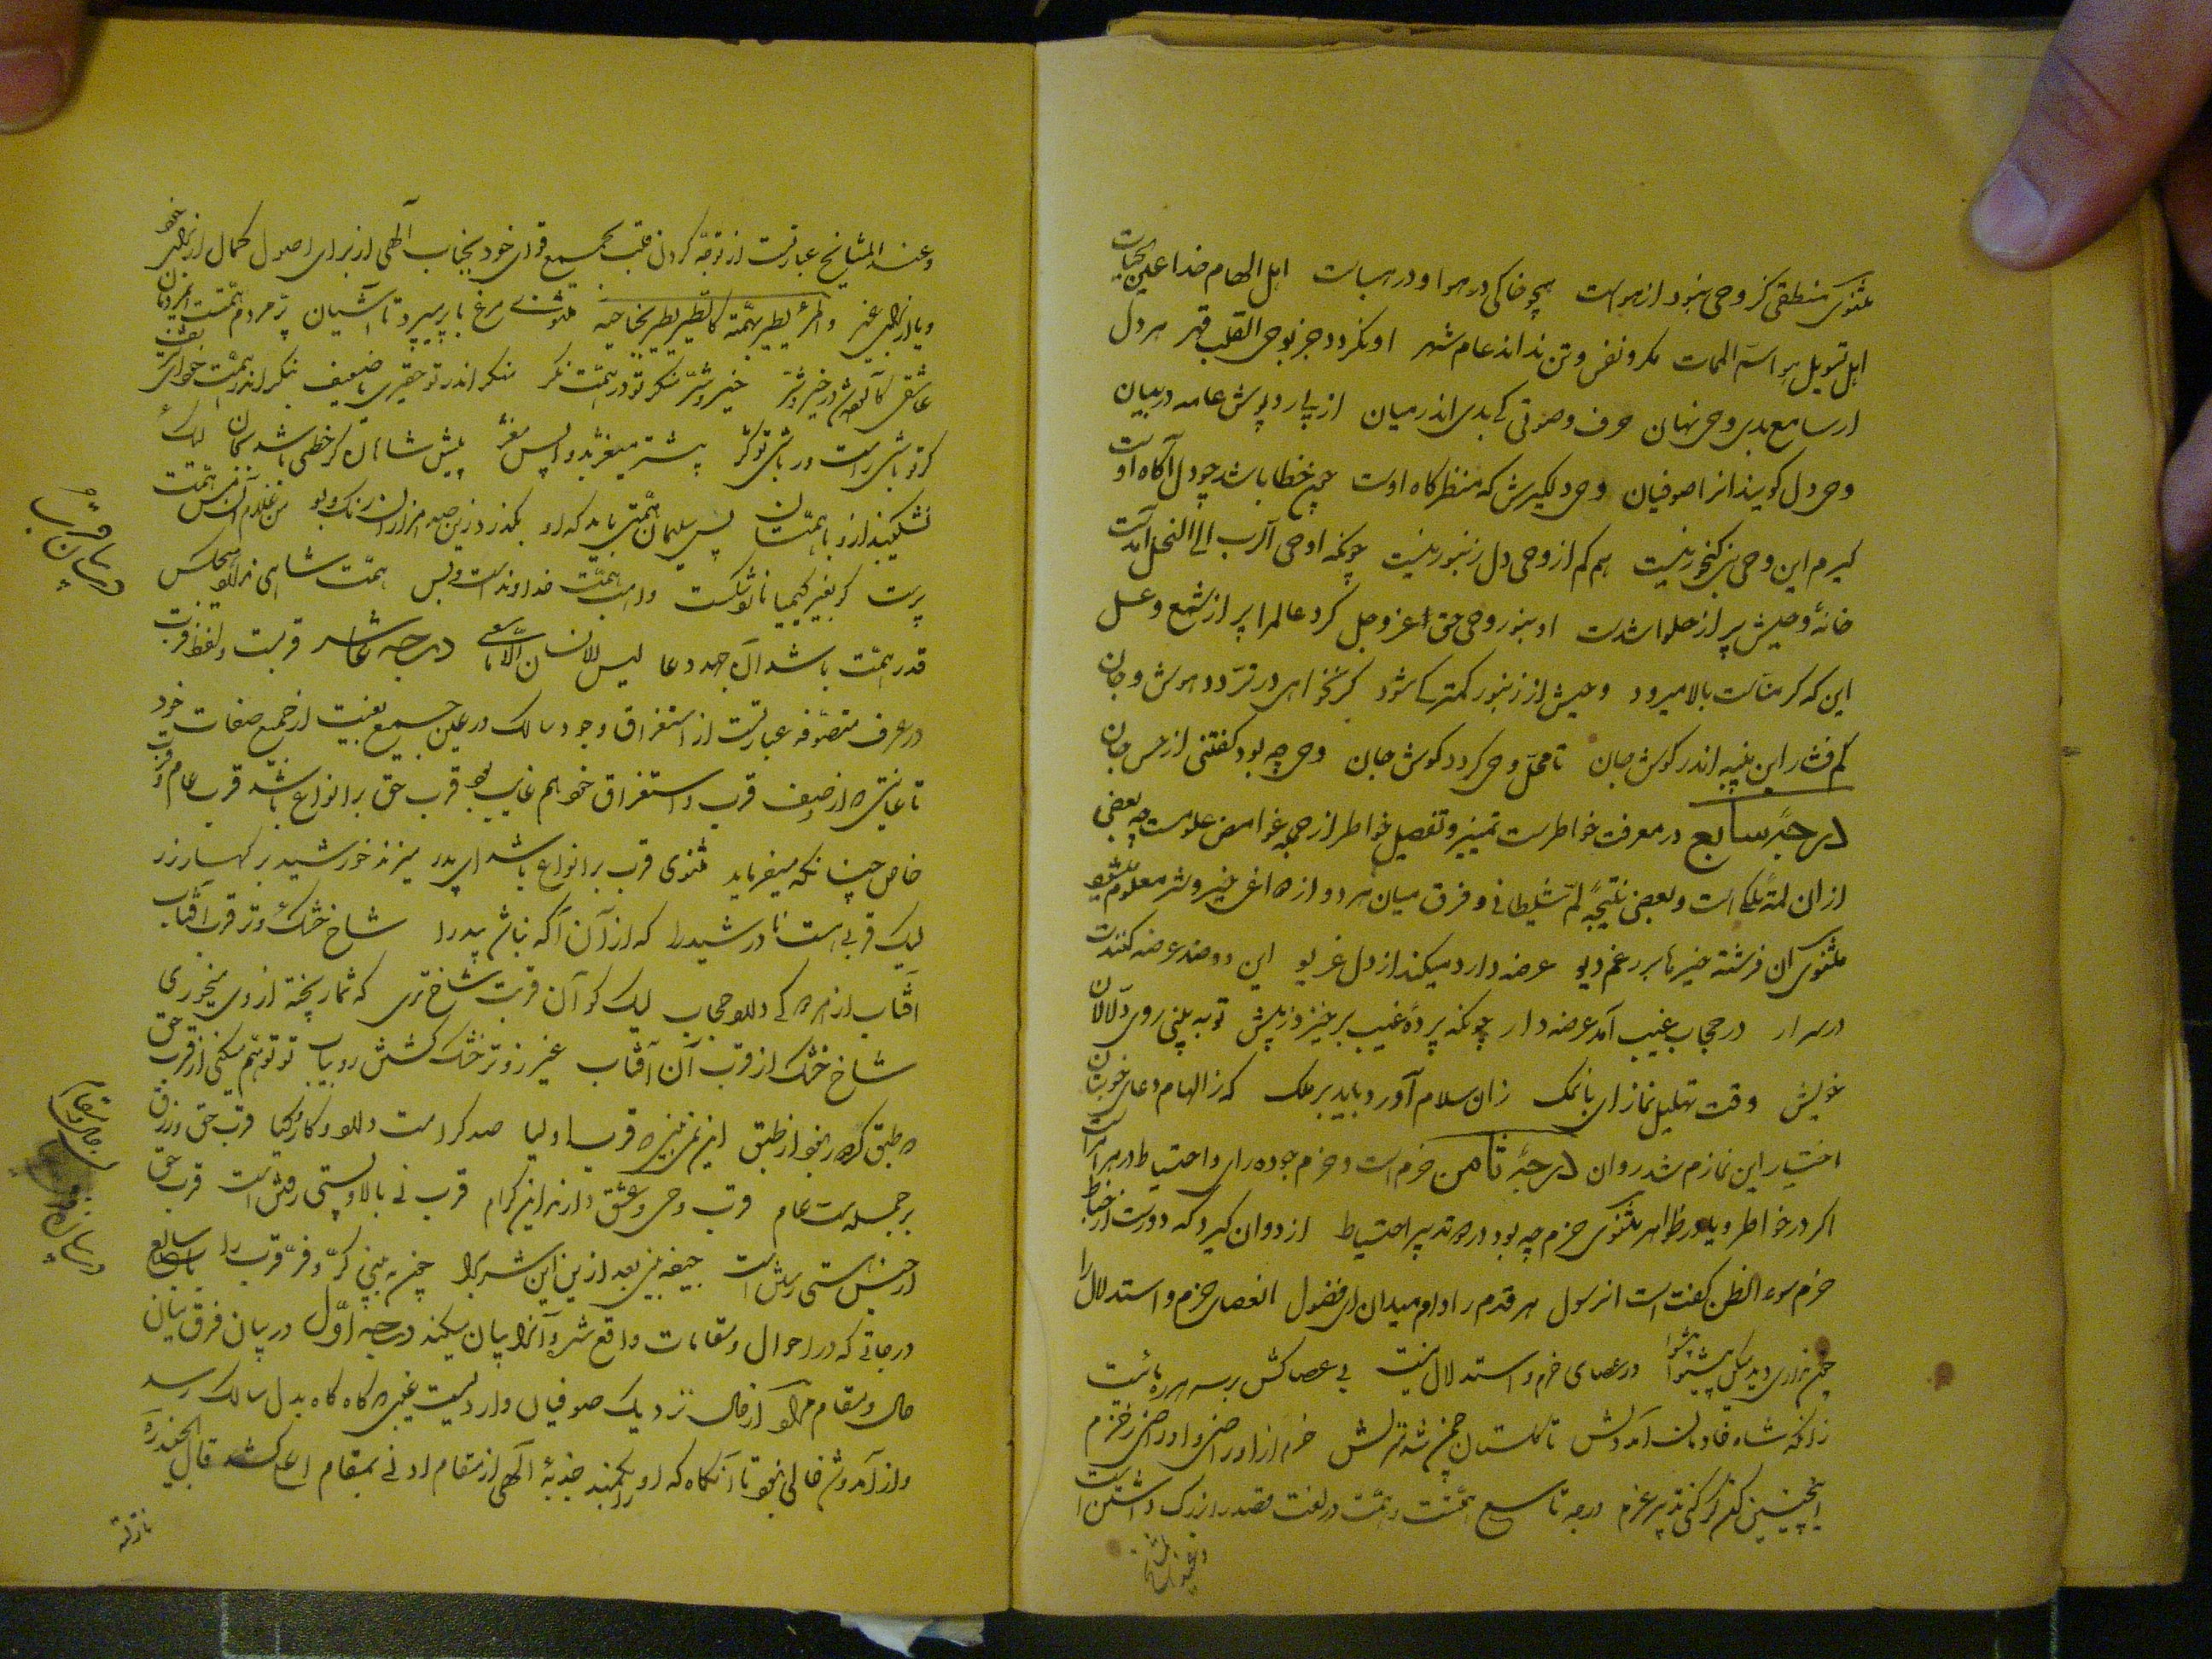 مثنوی منطقی کز وحی نبود از هواست همچو خاکی در هوا و در هباست اهل الهام خدا عین الحیات
اهل تسویل هوا سم الممات مکر و نفس و تن نداند عام شهر او نکردد جز بوحی القلب قهر هر دل
ار سامع بدی وحی نهان حرف و صوتی کی بدی اندر میان از پی روپوش عامه در بیان
وحی دل کویند آنرا صوفیان وحی دل کیرش که منظرکاه اوست چون خطا باشد چو دل آکاه اوست
کیرم این وحی نبی کنجور نیست هم کم از وحی دل زنبور نیست چونکه اوحی الرب الی النحل آمدست
خانهٔ وحیش پر از حلوا شدست او بنور وحی حق عز و جل کرد عالم را پر از شمع و عسل
این که کرمناست بالا میرود وحیش از زنبور کمتر کی شود کر نخواهی در تردد هوش و جان
کم فشار این پنبه اندر کوش جان تا محل وحی کردد کوش جان وحی چه بود کفتنی از حس جان
درجهٔ سابع در معرفت خواطرست تمییز و تفصیل خواطر از جمله غوامض علومست چه بعضی
از ان لمهٔ ملکی است و بعضی نتیجهٔ لمهٔ شیطانی و فرق میان هر دو از داعی خیر و شر معلوم میشود
مثنوی آن فرشته خیرها بر رغم دیو عرضه دارد میکند از دل غریو این دو ضد عرضه کنندت
در سرار در حجاب غیب آمد عرضه دار چونکه پردهٔ غیب برخیزد ز پیش تو به بینی روی دلالان
خویش وقت تحلیل نماز ای بانمک زان سلام آورد باید بر ملک که ز الهام و دعای خوبتان
اختیار این نمازم شد روان درجهٔ ثامن حزم است و حزم جودهٔ رای و احتیاط در هر امر است
اکر در خواطر و یا در ظواهر مثنوی حزم چه بود در دو تدبیر احتیاط از دو آن کیر که دورست از خباط
حزم سوء الظن کفته است آن رسول هر قدم را دام میدان ای فضول آن عصای حزم و استدلال را
چون نداری دید میکن پیشوا ور عصای حزم و استدلال نیست بی عصاکش بر سر هر ره مایست
زانکه شاه جادوان آمد دلش تا کلستان چمن شد منزلش حزم ازو راضی و او راضی ز حزم
اینچنین کن کر کنی تدبیر و عزم درجه تاسع همتست و همت در لغت قصد را بزرک داشتن است
وعند المشایخ
وعند المشایخ عبارتست از توجه کردن قلب بجمیع قوای خود بجناب الهی از برای حصول کمال از برای خود
و یا از برای غیر والمرء یطیر بهمته کالطیر یطیر بجناحیه مثنوی مرغ با پر میپرد تا آشیان پر مردم همتست ای مردمان
عاشقی کآلوده شد در خیر و شر خیر و شر منکر تو در همت نکر منکر اندر تو حقیری یا ضعیف بنکر اندر همت خود ای شریف
کر تو باشی راست ور باشی تو کژ پیشتر میغژ بدو واپس مغژ پیش شاهان کر خطر باشد بجان لیک
نشکیبند ازو باهمتان پس سلیمان همتی باید که او بکذرد زین صد هزاران رنک و بو من غلام آن مس همت
پرست کو بغیر کیمیا نارد شکست واهب همت خداوندست و بس همت شاهی ندارد هیچ کس
قدر همت باشد آن جهد و دعا لیس للانسان الا ما سعی درجهٔ عاشر قربست و لفظ قرب
در عرف متصوفه عبارتست از استغراق وجود سالک در عین جمع بغیبت از جمیع صفات خود
تا غایتی که از وصف قرب و استغراق خود هم غایب بود قرب حق بر انواع باشد قرب عام و قرب
خاص چنانکه میفرماید مثنوی قرب بر انواع باشد ای پدر میزند خورشید بر کهسار و زر
لیک قربی هست با زر شید را که از آن آکه نباشد بید را شاخ خشک و تر قریب آفتاب
آفتاب از هر دو کی دارد حجاب لیک کو آن قربت شاخ تری که ثمار پخته از وی میخوری
شاخ خشک از قرب آن آفتاب غیر زوتر خشک کشتن رو بیاب تو توهم میکنی از قرب حق
که طبق کر دور نبود از طبق این نمی بینی که قرب اولیا صد کرامت دارد و کار و کیا قرب حق و رزق
بر جمله ست عام قرب وحی و عشق دارند این کرام قرب نی بالا و پستی رفتن است قرب حق
از جنس هستی رستن است
درجاتی که در احوال و مقامات واقع شده آنرا بیان میکند درجهٔ اول در بیان فرق میان
حال و مقام مراد از حال نزدیک صوفیان واردیست غیبی که کاه کاه بدل سالک رسد
و از آمد و شد خالی نبود تا آنکاه که او را بکمند جذبهٔ الهی از مقام ادنی بمقام اعلی کشد قال الجنید
در بیان قرب
در بیان فرق میان حال و مقام
نازلة